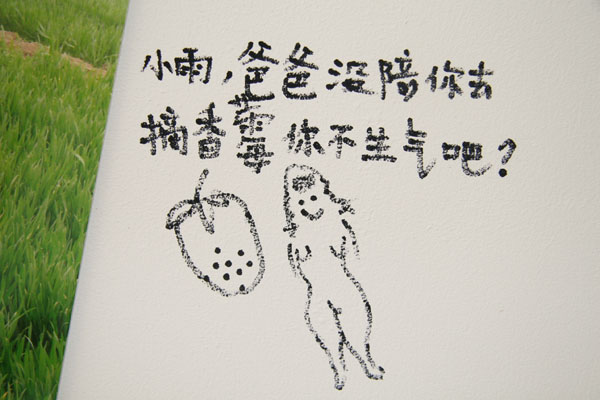 小雨，爸爸没陪你去
摘香莓你不生气吧？